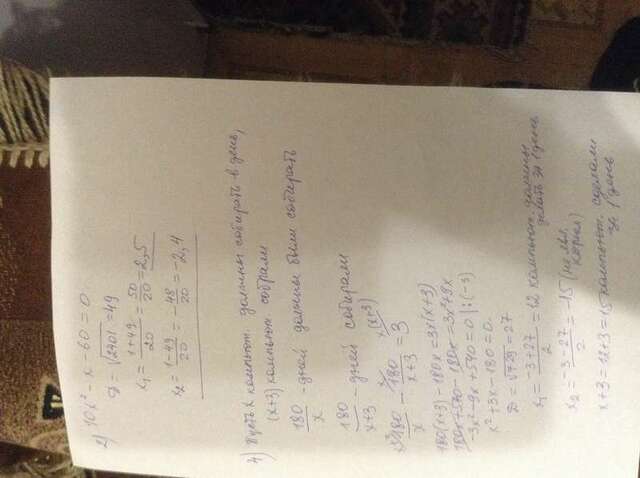 2) 10x² - x - 60 = 0
D = √2401 = 49
x₁ = (1+49)/20 = 50/20 = 2,5
x₂ = (1-49)/20 = -48/20 = -2,4
4) Пусть x компьют. должны собирать в день,
(x+3) компьют. собрали
180/x - дней должны были собирать
180/(x+3) - дней собирали
180/x - 180/(x+3) = 3
180(x+3) - 180x = 3x(x+3)
180x + 540 - 180x = 3x² + 9x
-3x² - 9x + 540 = 0 |:(-3)
x² + 3x - 180 = 0
D = √729 = 27
x₁ = (-3+27)/2 = 12 компьют. должны
делать за 1 день
x₂ = (-3-27)/2 = -15 (не явл.
корнем)
x+3 = 12+3 = 15 компьют. сделали
за 1 день.